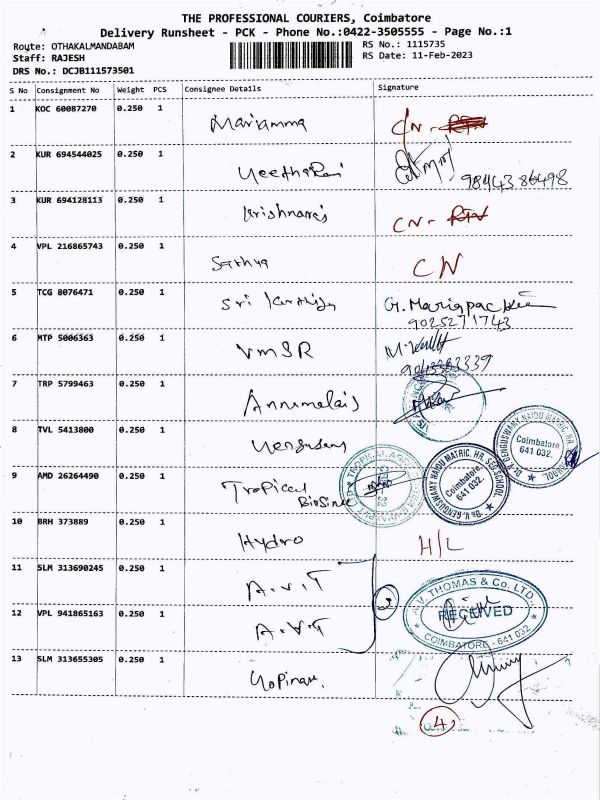 THE PROFESSIONAL COURIERS, Coimbatore
Delivery Runsheet - PCK - Phone No.:0422-3505555 - Page No.:1
Route: OTHAKALMANDABAM
Staff: RAJESH
DRS No.: DCJB111573501
RS No.: 1115735
RS Date: 11-Feb-2023
S No Consignment No Weight PCS Consignee Details Signature
1 KOC 60087270 0.250 1 Mariamma CN -
2 KUR 694544025 0.250 1
9844386498
3 KUR 694128113 0.250 1 Krishnaraj CN -
4 VPL 216865743 0.250 1 Sathya CN
5 TCG 8076471 0.250 1 Sri
9025271743
6 MTP 5006363 0.250 1 VMSR
7 TRP 5799463 0.250 1 Annamalais
8 TVL 5413800 0.250 1
Coimbatore
641 032.
9 AMD 26264490 0.250 1 Tropical
Coimbatore.
641 032.
10 BRH 373889 0.250 1 Hydro H/L
11 SLM 313690245 0.250 1 A.V.T
2
12 VPL 941865163 0.250 1 A.V.T
A.V. THOMAS & Co. LTD.
RECEIVED
COIMBATORE - 641 032.
13 SLM 313655305 0.250 1
4